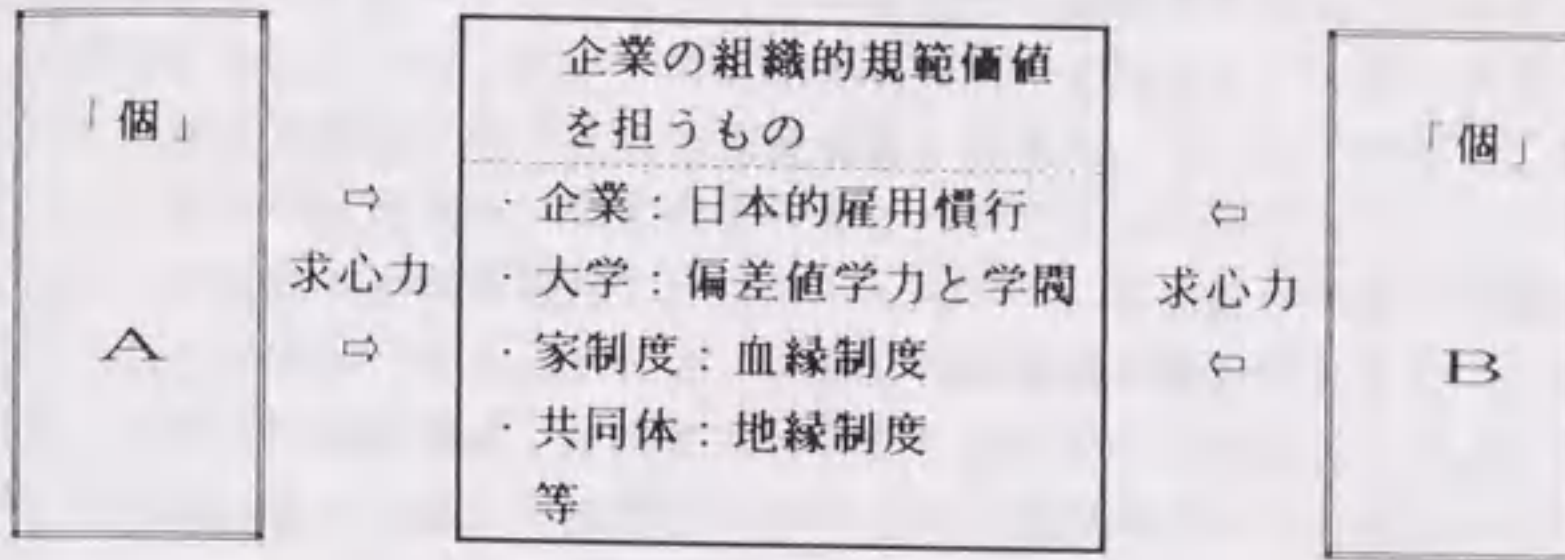 「個」
A
⇨
求心力
⇨
企業の組織的規範価値
を担うもの
・企業：日本的雇用慣行
・大学：偏差値学力と学閥
・家制度：血縁制度
・共同体：地縁制度
等
⇦
求心力
⇦
「個」
B